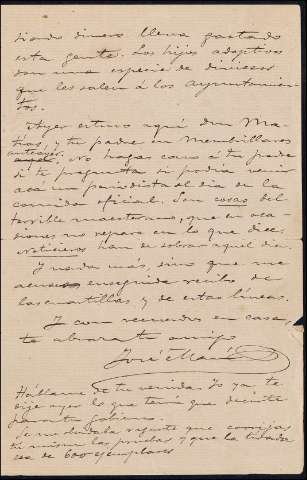 dinero lleva gastado
esta gente. Los hijos adoptivos
son una especie de diviesos
que les salen á los ayuntamien-
tos.
Ayer estuvo aquí Don Ma-
tías, y tu padre en Membrillares
anteayer. No hagas caso á tu padre
si te pregunta si podría venir
acá un periodista al día de la
comida oficial. Son cosas del
terrible maestrazo, que en oca-
siones no repara en lo que dice.
Noticieros han de sobrar aquel día.
Y nada más, sino que me
acuses enseguida recibo de
las cuartillas y de estas líneas.
Y con recuerdos en casa,
te abraza tu amigo
José María
Háblame de tu venida. Yo ya te
dije ayer lo que tenía que decirte
Se me olvidaba rogarte que corrijas
tú mismo las pruebas y que la tirada
sea de 600 ejemplares